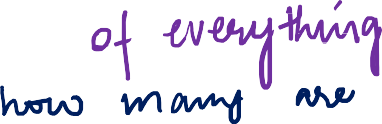 of everything
how many are